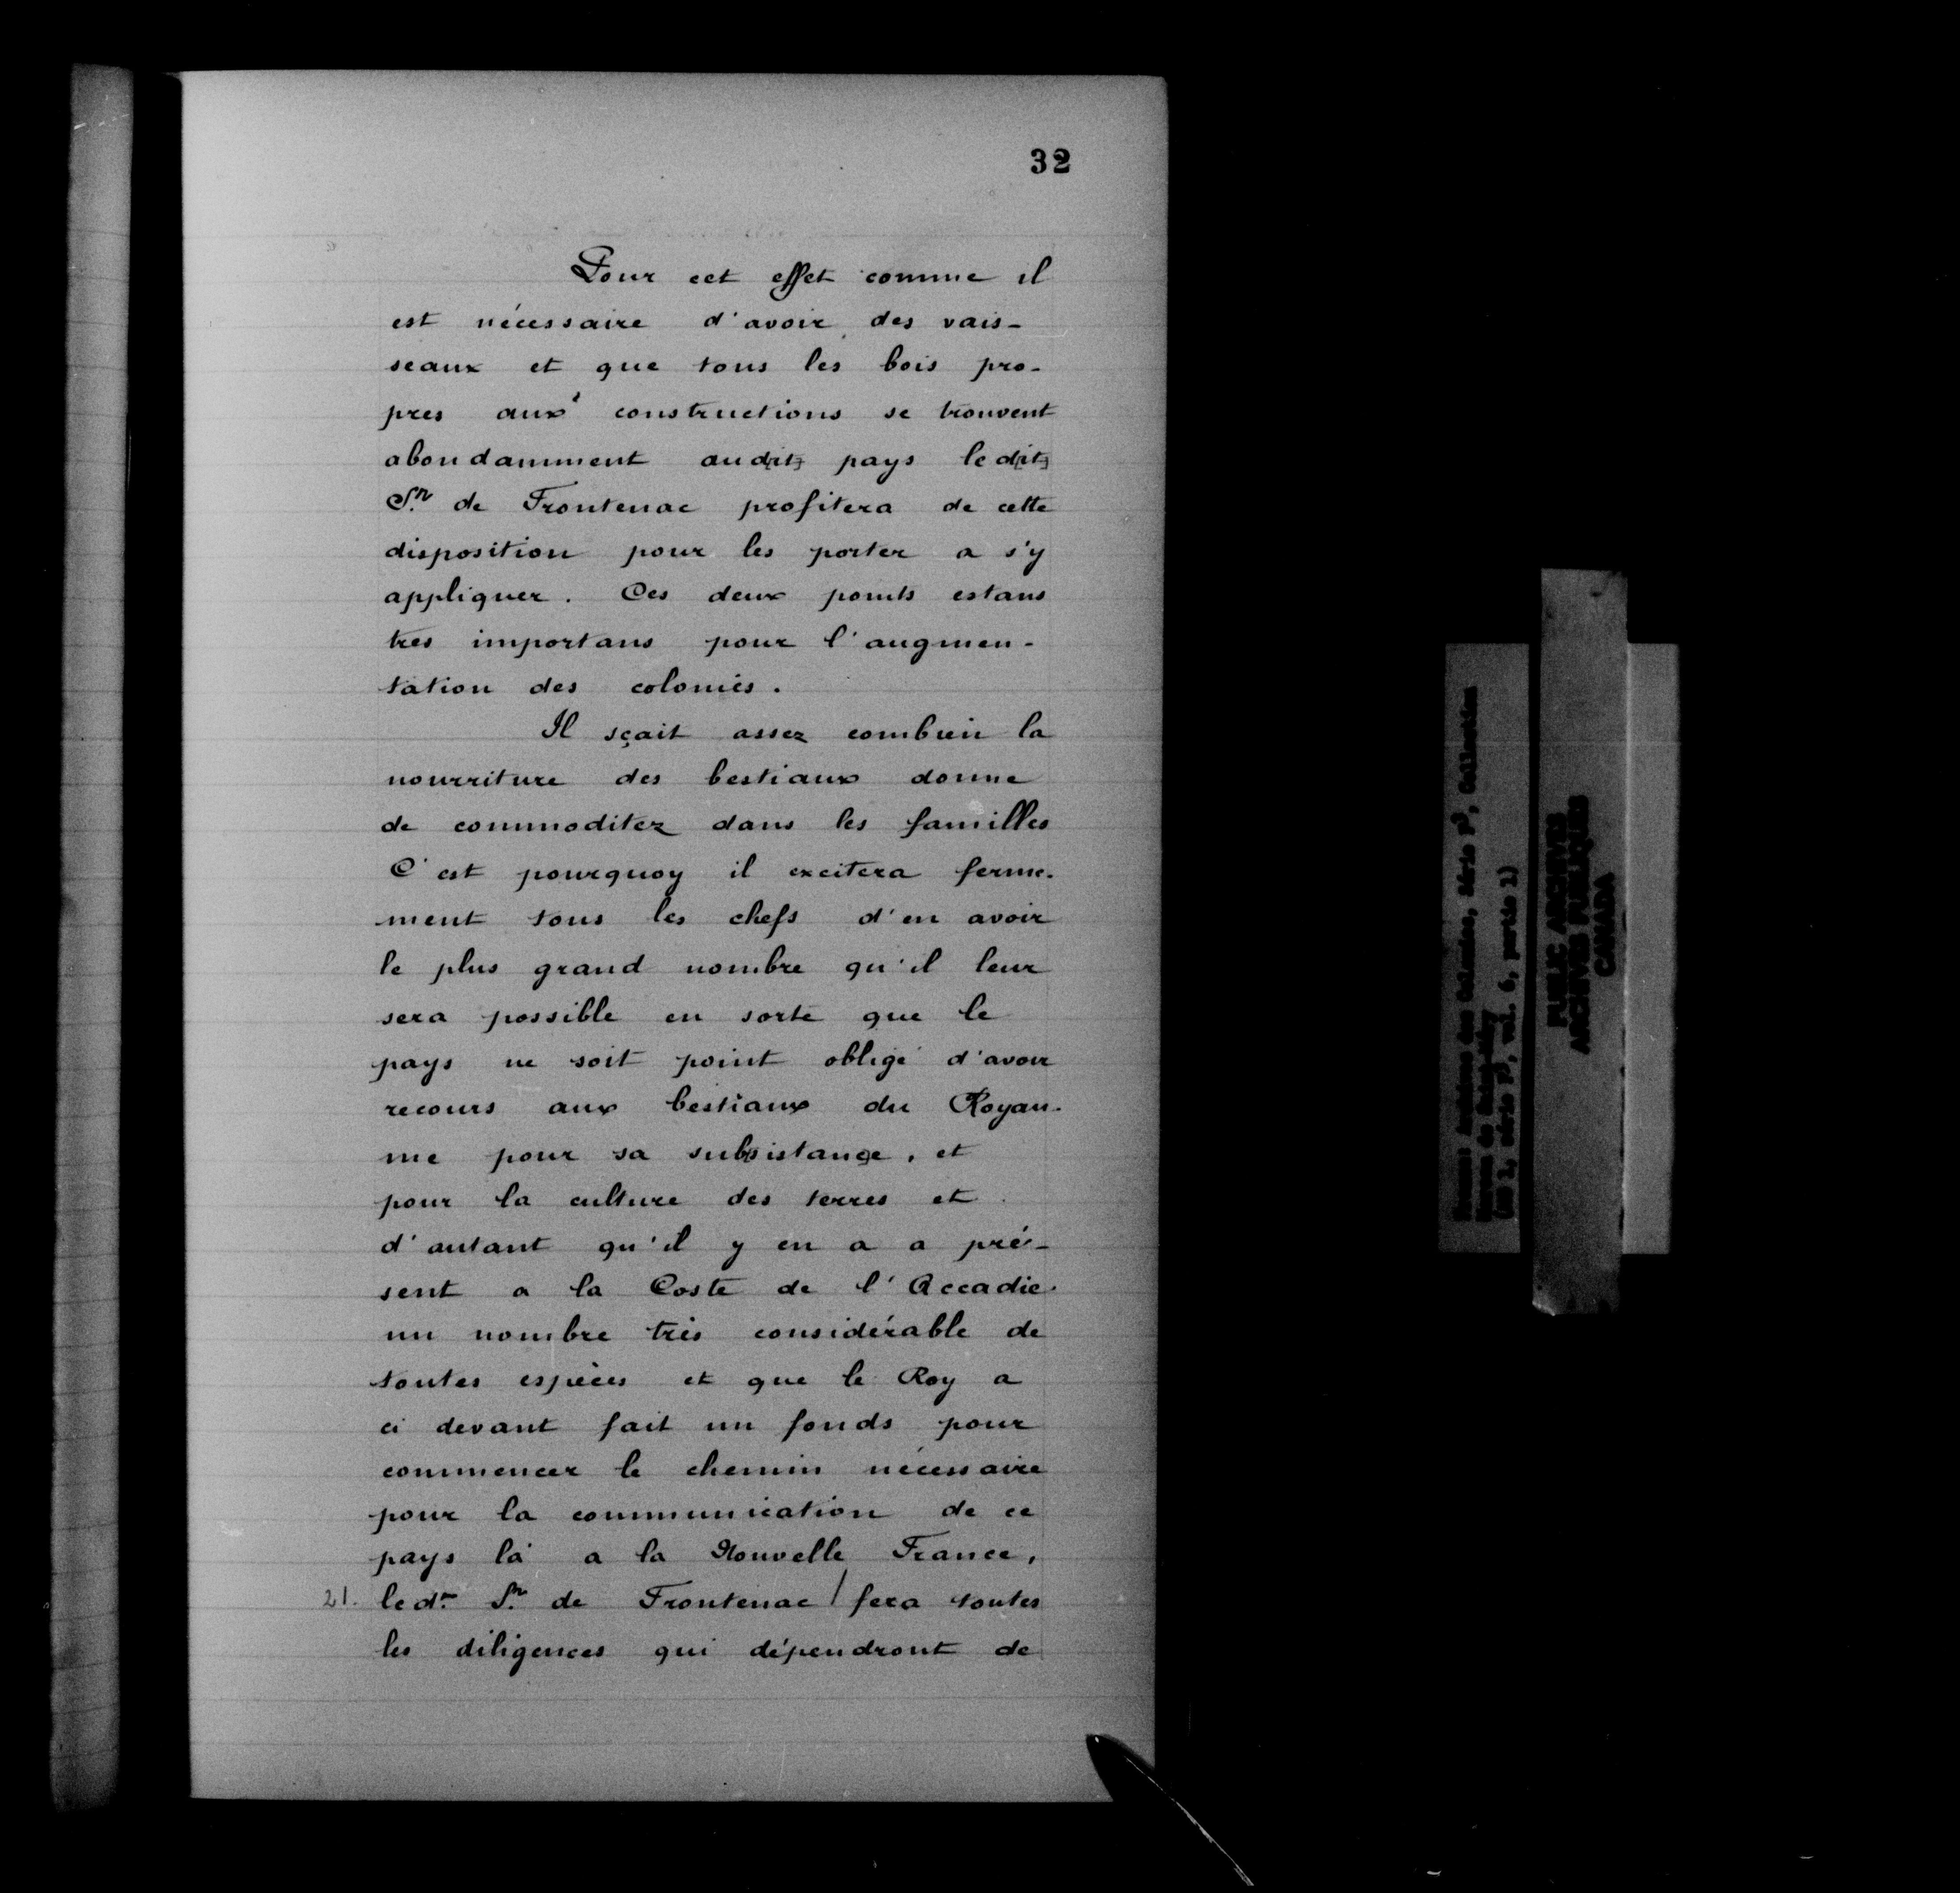 32
Pour cet effet comme il
est nécessaire d'avoir des vais-
seaux et que tous les bois pro-
pres aux constructions se trouvent
abondamment aud[it] pays led[it]
Sr. de Frontenac profitera de cette
disposition pour les porter a s'y
appliquer. Ces deux points estans
tres importans pour l'augmen-
tation des colonies.
Il sçait assez combien la
nourriture des bestiaux donne
de commoditez dans les familles
C'est pourquoy il excitera ferme-
ment tous les chefs d'en avoir
le plus grand nombre qu'il leur
sera possible en sorte que le
pays ne soit point obligé d'avoir
recours aux bestiaux du Royau-
me pour sa subsistance, et
pour la culture des terres et
d'autant qu'il y en a a pré-
sent a la Coste de l'Accadie
un nombre très considérable de
toutes espèces et que le Roy a
ci devant fait un fonds pour
commencer le chemin nécessaire
pour la communication de ce
pays là a la Nouvelle France,
21. led.t Sr. de Frontenac / fera toutes
les diligences qui dépendront de
Archives des Colonies, Série F3, Collection
Moreau de Saint-Méry
(MG 1, série F3, vol. 6, partie 1)
PUBLIC ARCHIVES
ARCHIVES PUBLIQUES
CANADA